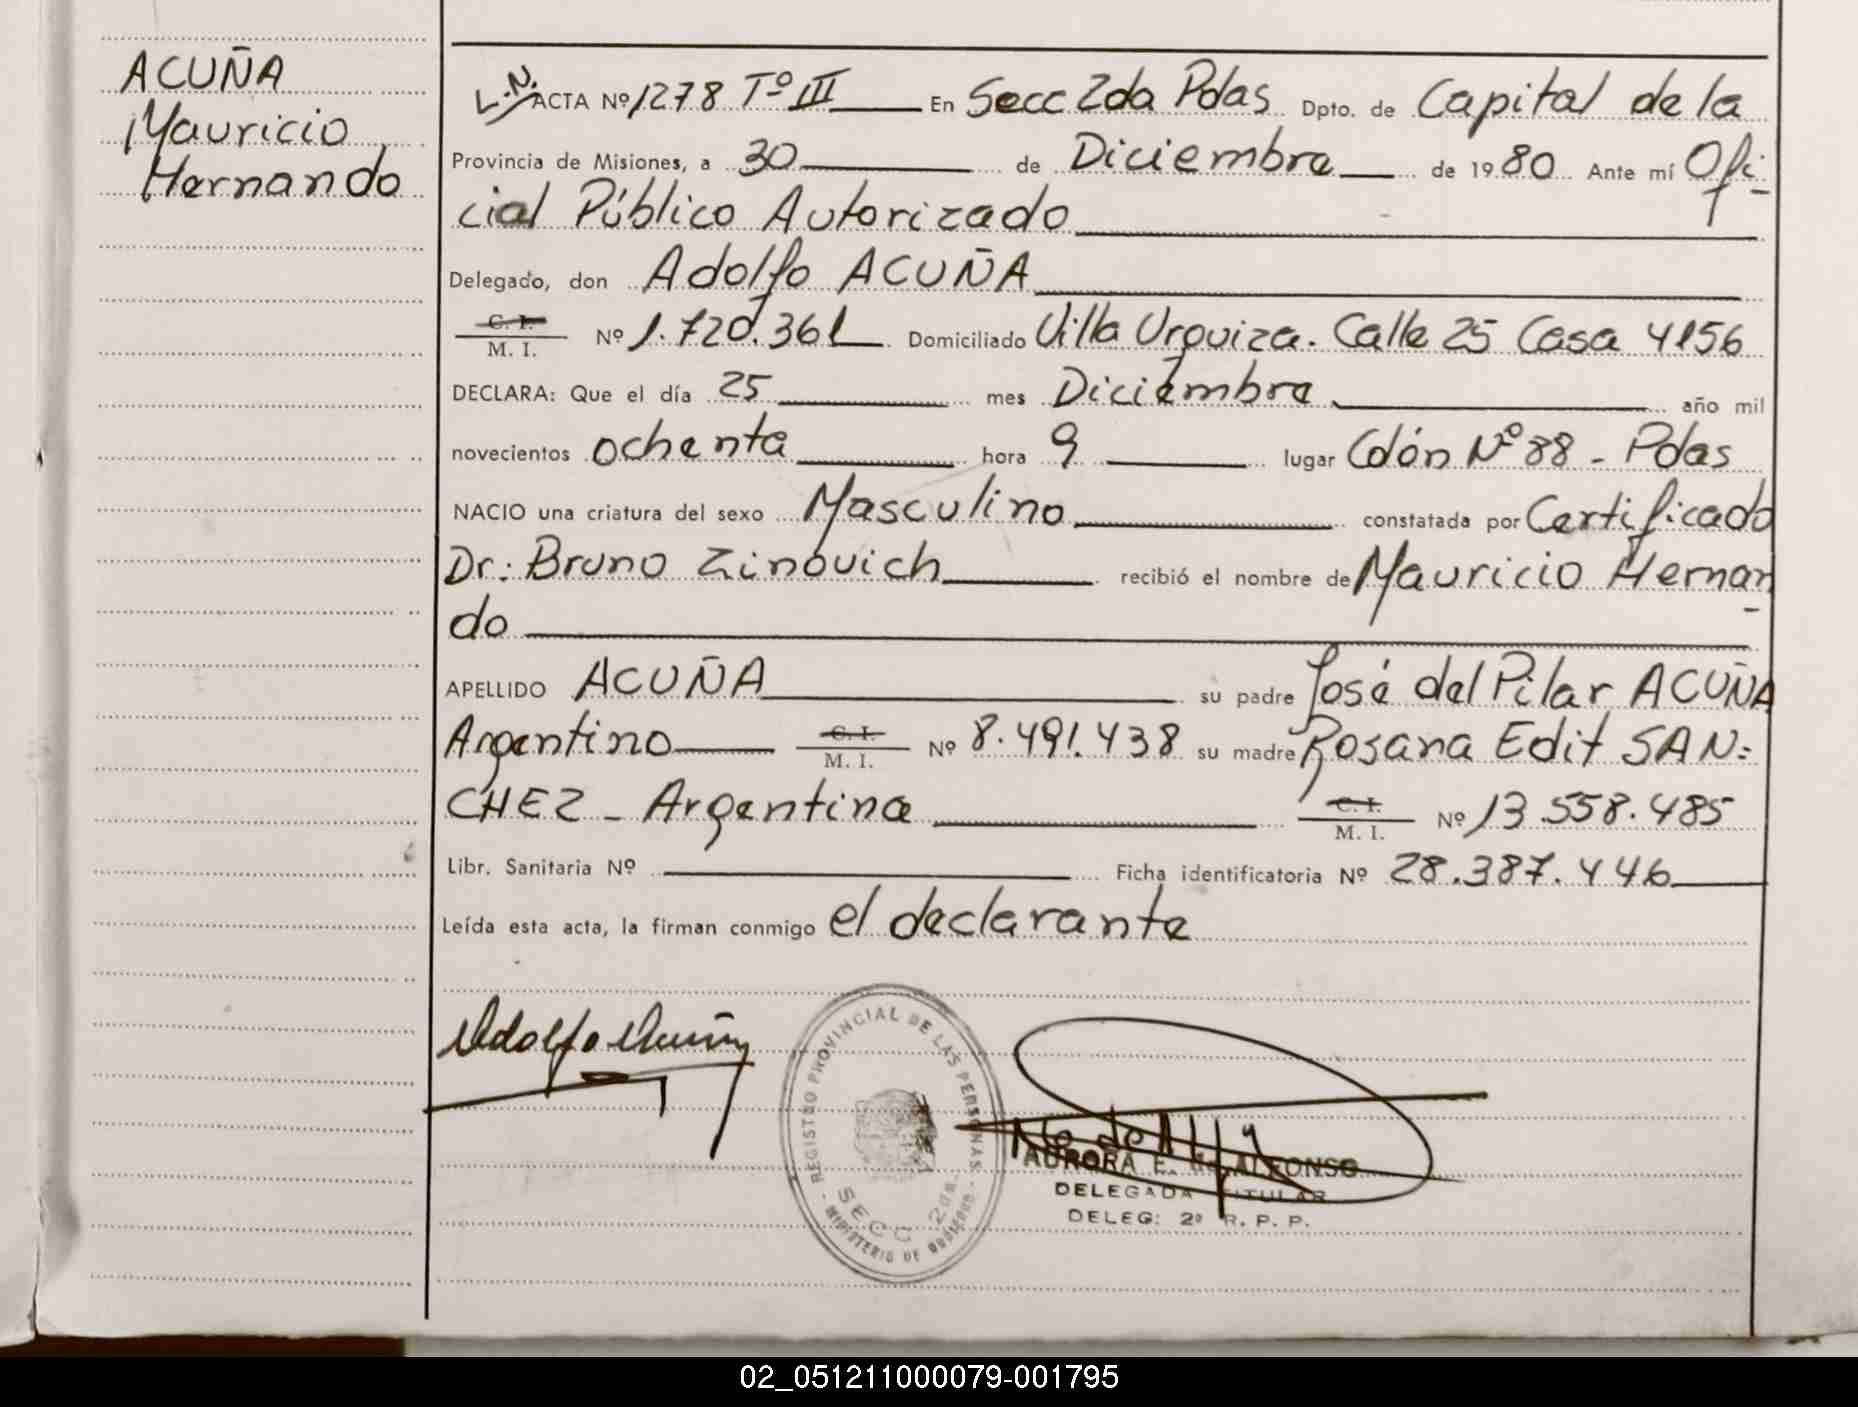 ACUÑA
Mauricio
Hernando
L.N. ACTA Nº 1278 Tº III En Secc 2da Pdas Dpto. de Capital de la
Provincia de Misiones, a 30 de Diciembre de 1980 Ante mí Ofi-
cial Público Autorizado
Delegado, don Adolfo ACUÑA
C. I.
M. I. Nº 1.720.361 Domiciliado Villa Urquiza. Calle 25 Casa 4156
DECLARA: Que el día 25 mes Diciembre año mil
novecientos ochenta hora 9 lugar Colón Nº 88 - Pdas
NACIO una criatura del sexo Masculino constatada por Certificado
Dr: Bruno Zinovich recibió el nombre de Mauricio Hernan-
do
APELLIDO ACUÑA su padre José del Pilar ACUÑA
Argentino C. I. M. I. Nº 8.491.438 su madre Rosana Edit SAN=
CHEZ - Argentina C. I. M. I. Nº 13.558.485
Libr. Sanitaria Nº Ficha identificatoria Nº 28.387.446
Leída esta acta, la firman conmigo el declarante
Adolfo Acuña
REGISTRO PROVINCIAL DE LAS PERSONAS
SECC 2da.
MINISTERIO DE GOBIERNO
AURORA E. de ALFONSO
DELEGADA TITULAR
DELEG: 2º R. P. P.
02_051211000079-001795